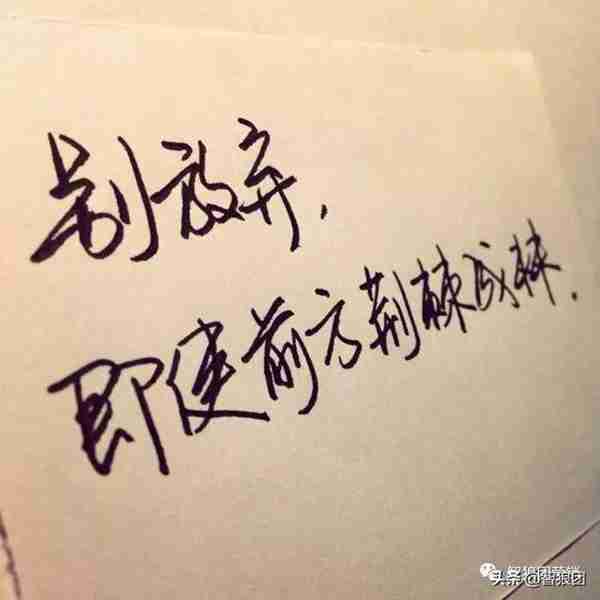 别放弃，
即使前方荆棘成林.
头条@智狼团